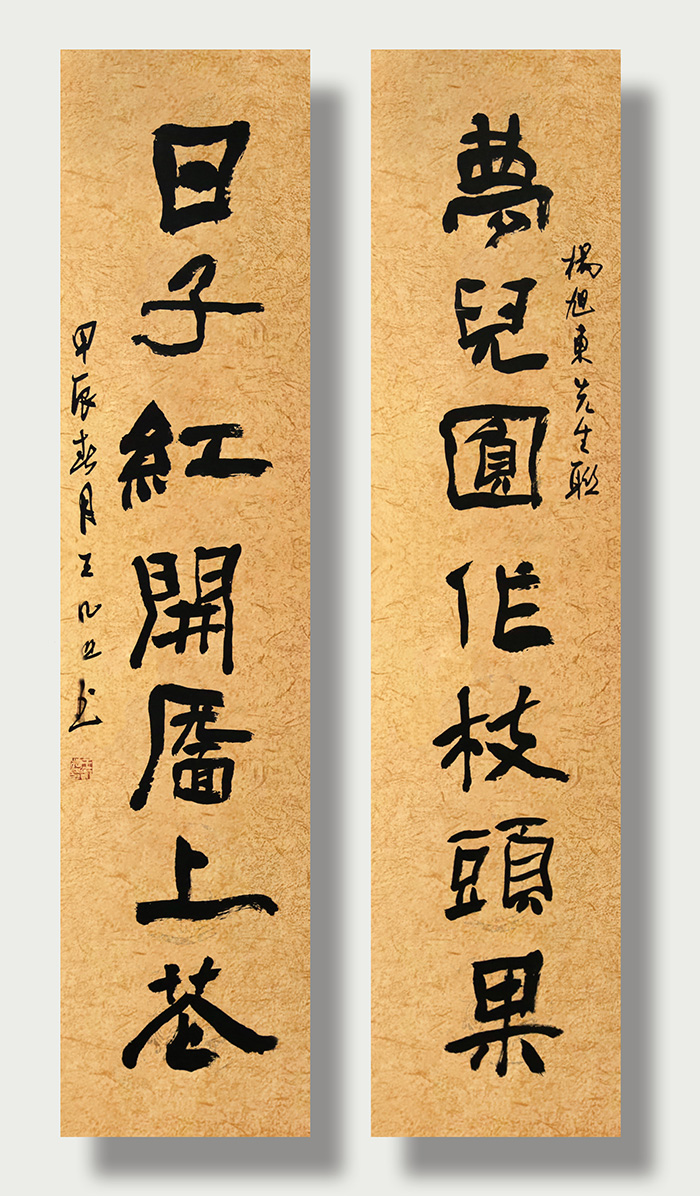 夢兒圓作枝頭果
楊旭東先生聯
日子紅開靥上花
甲辰春月王书